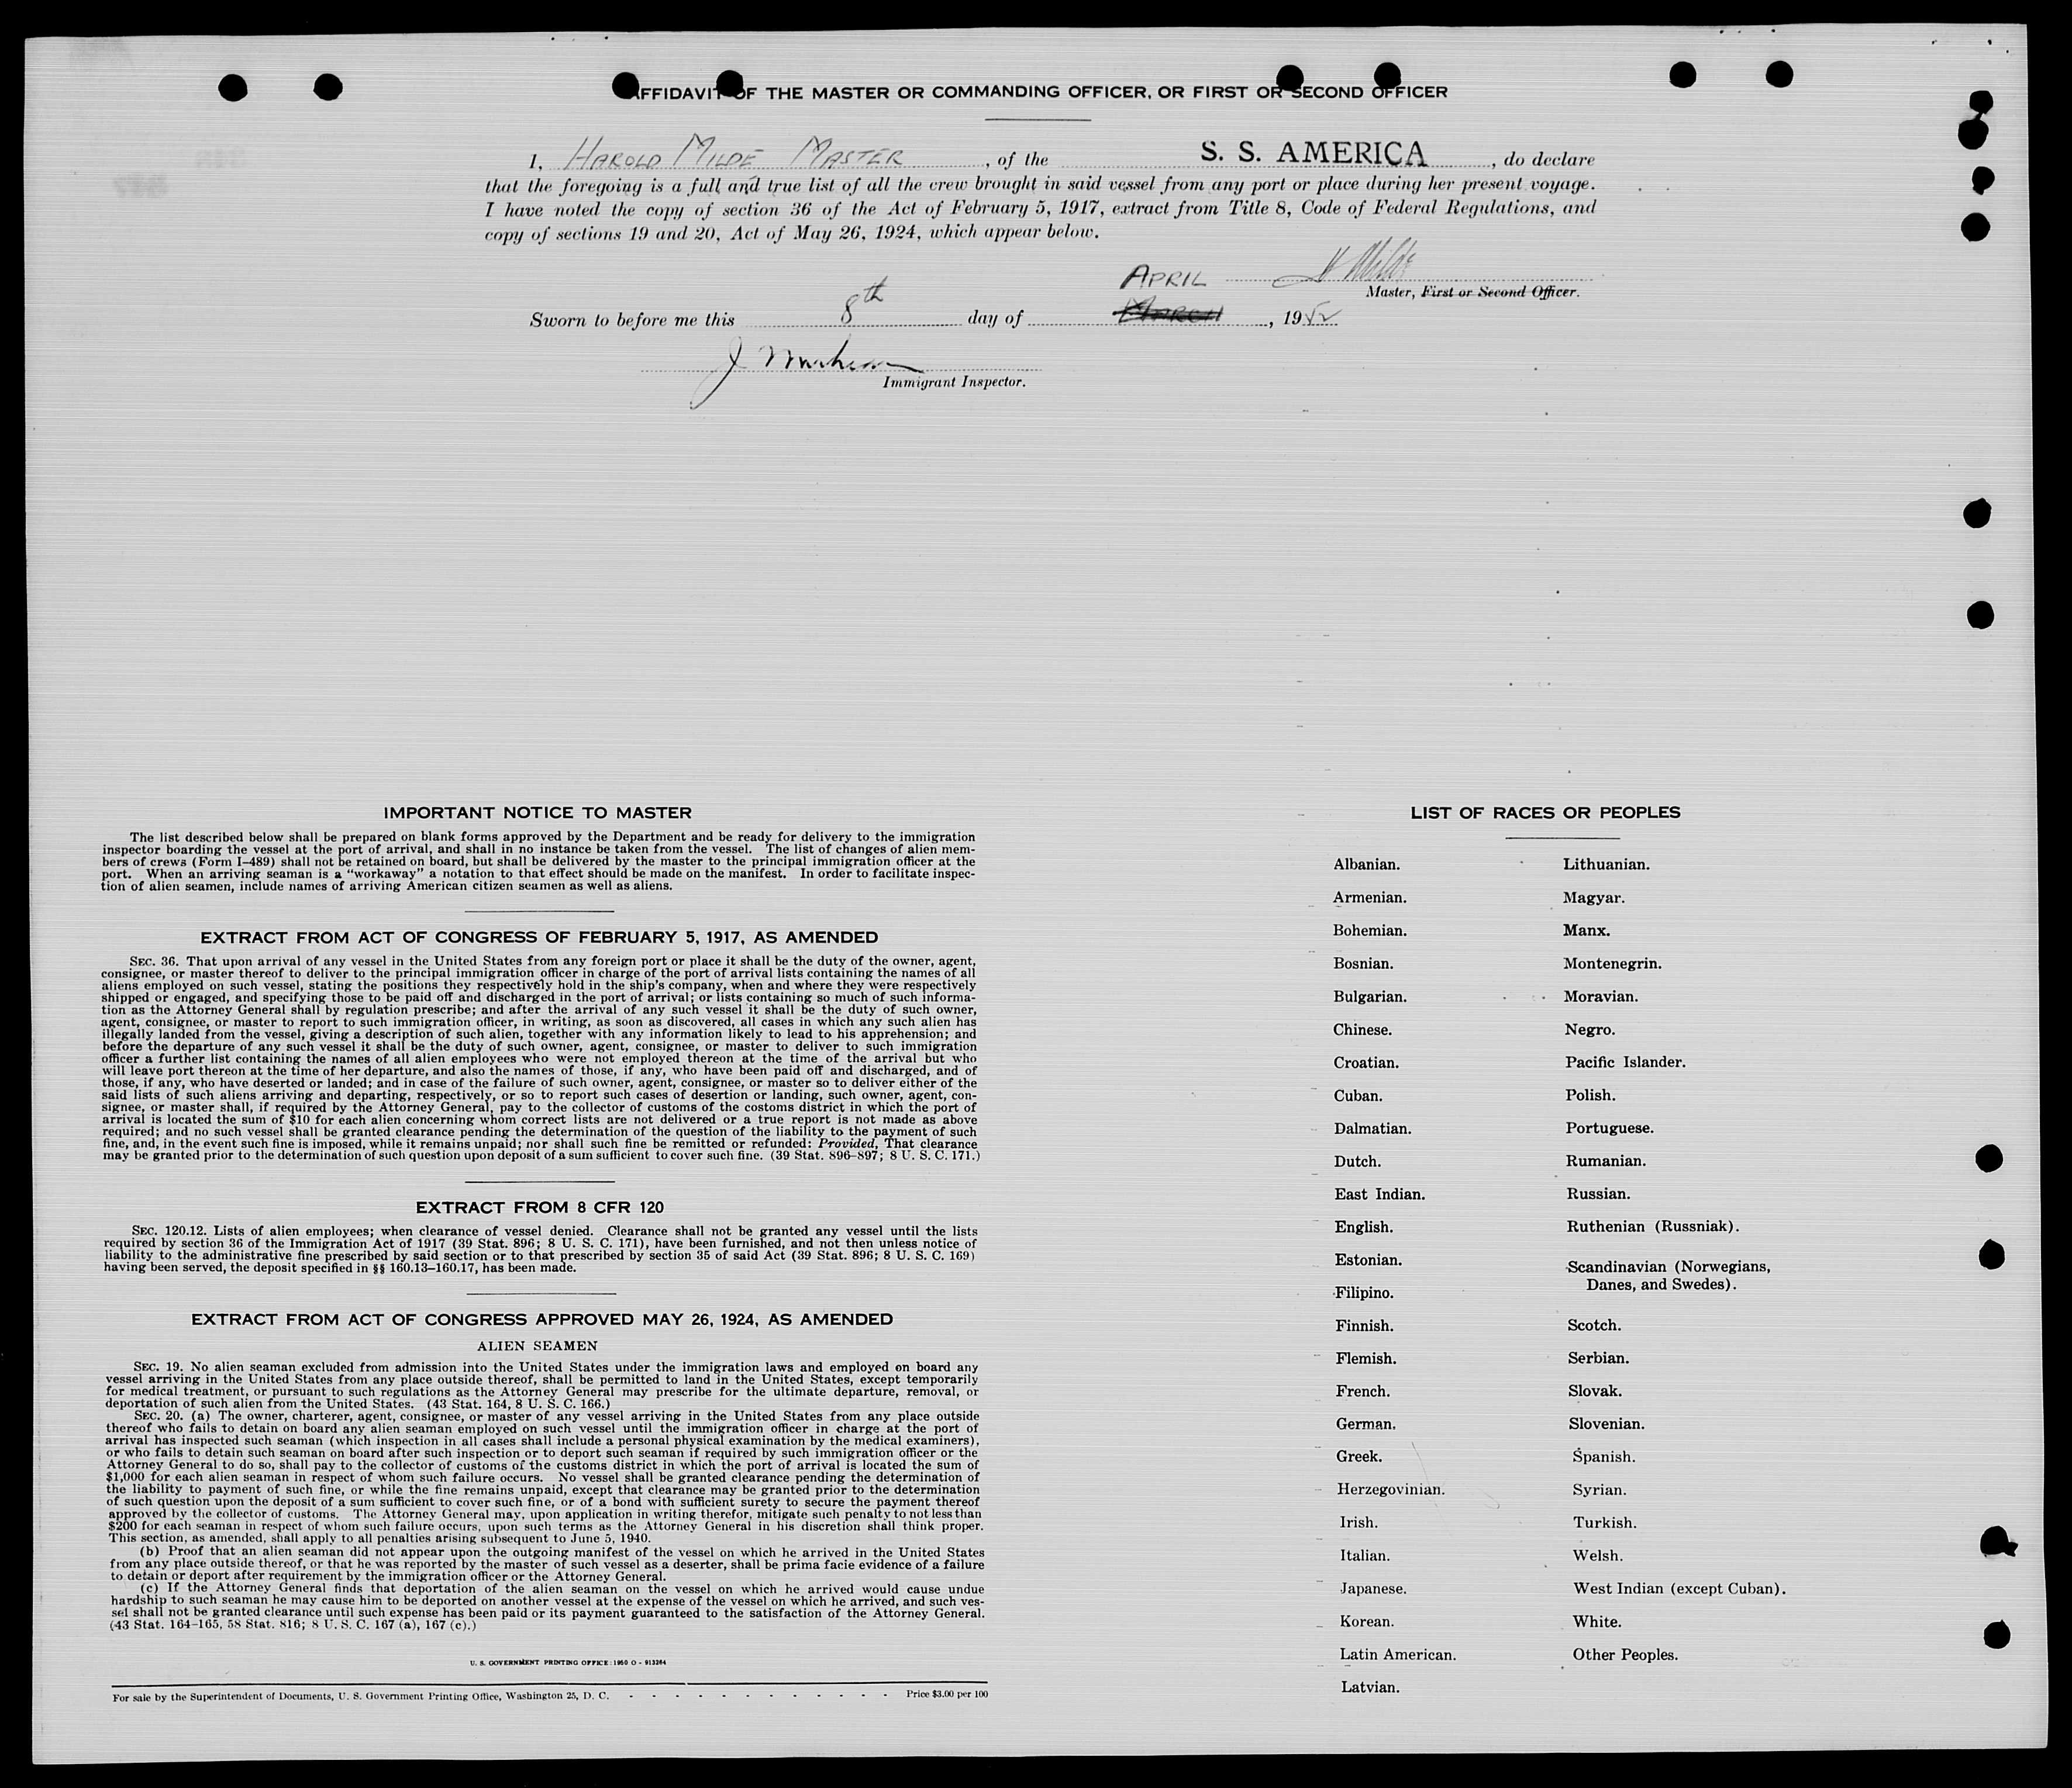 AFFIDAVIT OF THE MASTER OR COMMANDING OFFICER, OR FIRST OR SECOND OFFICER
I, HAROLD MILDE MASTER, of the S. S. AMERICA, do declare
that the foregoing is a full and true list of all the crew brought in said vessel from any port or place during her present voyage.
I have noted the copy of section 36 of the Act of February 5, 1917, extract from Title 8, Code of Federal Regulations, and
copy of sections 19 and 20, Act of May 26, 1924, which appear below.
H Milde
Master, First or Second Officer.
APRIL
Sworn to before me this 8th day of MARCH, 1952
J
Immigrant Inspector.
IMPORTANT NOTICE TO MASTER
The list described below shall be prepared on blank forms approved by the Department and be ready for delivery to the immigration
inspector boarding the vessel at the port of arrival, and shall in no instance be taken from the vessel. The list of changes of alien mem-
bers of crews (Form I-489) shall not be retained on board, but shall be delivered by the master to the principal immigration officer at the
port. When an arriving seaman is a "workaway" a notation to that effect should be made on the manifest. In order to facilitate inspec-
tion of alien seamen, include names of arriving American citizen seamen as well as aliens.
EXTRACT FROM ACT OF CONGRESS OF FEBRUARY 5, 1917, AS AMENDED
SEC. 36. That upon arrival of any vessel in the United States from any foreign port or place it shall be the duty of the owner, agent,
consignee, or master thereof to deliver to the principal immigration officer in charge of the port of arrival lists containing the names of all
aliens employed on such vessel, stating the positions they respectively hold in the ship's company, when and where they were respectively
shipped or engaged, and specifying those to be paid off and discharged in the port of arrival; or lists containing so much of such informa-
tion as the Attorney General shall by regulation prescribe; and after the arrival of any such vessel it shall be the duty of such owner,
agent, consignee, or master to report to such immigration officer, in writing, as soon as discovered, all cases in which any such alien has
illegally landed from the vessel, giving a description of such alien, together with any information likely to lead to his apprehension; and
before the departure of any such vessel it shall be the duty of such owner, agent, consignee, or master to deliver to such immigration
officer a further list containing the names of all alien employees who were not employed thereon at the time of the arrival but who
will leave port thereon at the time of her departure, and also the names of those, if any, who have been paid off and discharged, and of
those, if any, who have deserted or landed; and in case of the failure of such owner, agent, consignee, or master so to deliver either of the
said lists of such aliens arriving and departing, respectively, or so to report such cases of desertion or landing, such owner, agent, con-
signee, or master shall, if required by the Attorney General, pay to the collector of customs of the costoms district in which the port of
arrival is located the sum of $10 for each alien concerning whom correct lists are not delivered or a true report is not made as above
required; and no such vessel shall be granted clearance pending the determination of the question of the liability to the payment of such
fine, and, in the event such fine is imposed, while it remains unpaid; nor shall such fine be remitted or refunded: Provided, That clearance
may be granted prior to the determination of such question upon deposit of a sum sufficient to cover such fine. (39 Stat. 896-897; 8 U. S. C. 171.)
EXTRACT FROM 8 CFR 120
SEC. 120.12. Lists of alien employees; when clearance of vessel denied. Clearance shall not be granted any vessel until the lists
required by section 36 of the Immigration Act of 1917 (39 Stat. 896; 8 U. S. C. 171), have been furnished, and not then unless notice of
liability to the administrative fine prescribed by said section or to that prescribed by section 35 of said Act (39 Stat. 896; 8 U. S. C. 169)
having been served, the deposit specified in §§ 160.13-160.17, has been made.
EXTRACT FROM ACT OF CONGRESS APPROVED MAY 26, 1924, AS AMENDED
ALIEN SEAMEN
SEC. 19. No alien seaman excluded from admission into the United States under the immigration laws and employed on board any
vessel arriving in the United States from any place outside thereof, shall be permitted to land in the United States, except temporarily
for medical treatment, or pursuant to such regulations as the Attorney General may prescribe for the ultimate departure, removal, or
deportation of such alien from the United States. (43 Stat. 164, 8 U. S. C. 166.)
SEC. 20. (a) The owner, charterer, agent, consignee, or master of any vessel arriving in the United States from any place outside
thereof who fails to detain on board any alien seaman employed on such vessel until the immigration officer in charge at the port of
arrival has inspected such seaman (which inspection in all cases shall include a personal physical examination by the medical examiners),
or who fails to detain such seaman on board after such inspection or to deport such seaman if required by such immigration officer or the
Attorney General to do so, shall pay to the collector of customs of the customs district in which the port of arrival is located the sum of
$1,000 for each alien seaman in respect of whom such failure occurs. No vessel shall be granted clearance pending the determination of
the liability to payment of such fine, or while the fine remains unpaid, except that clearance may be granted prior to the determination
of such question upon the deposit of a sum sufficient to cover such fine, or of a bond with sufficient surety to secure the payment thereof
approved by the collector of customs. The Attorney General may, upon application in writing therefor, mitigate such penalty to not less than
$200 for each seaman in respect of whom such failure occurs, upon such terms as the Attorney General in his discretion shall think proper.
This section, as amended, shall apply to all penalties arising subsequent to June 5, 1940.
(b) Proof that an alien seaman did not appear upon the outgoing manifest of the vessel on which he arrived in the United States
from any place outside thereof, or that he was reported by the master of such vessel as a deserter, shall be prima facie evidence of a failure
to detain or deport after requirement by the immigration officer or the Attorney General.
(c) If the Attorney General finds that deportation of the alien seaman on the vessel on which he arrived would cause undue
hardship to such seaman he may cause him to be deported on another vessel at the expense of the vessel on which he arrived, and such ves-
sel shall not be granted clearance until such expense has been paid or its payment guaranteed to the satisfaction of the Attorney General.
(43 Stat. 164-165, 58 Stat. 816; 8 U. S. C. 167 (a), 167 (c).)
U. S. GOVERNMENT PRINTING OFFICE: 1950 O - 913264
For sale by the Superintendent of Documents, U. S. Government Printing Office, Washington 25, D. C. - - - - - - - - - - - - Price $3.00 per 100
LIST OF RACES OR PEOPLES
Albanian.
Armenian.
Bohemian.
Bosnian.
Bulgarian.
Chinese.
Croatian.
Cuban.
Dalmatian.
Dutch.
East Indian.
English.
Estonian.
Filipino.
Finnish.
Flemish.
French.
German.
Greek.
Herzegovinian.
Irish.
Italian.
Japanese.
Korean.
Latin American.
Latvian.
Lithuanian.
Magyar.
Manx.
Montenegrin.
Moravian.
Negro.
Pacific Islander.
Polish.
Portuguese.
Rumanian.
Russian.
Ruthenian (Russniak).
Scandinavian (Norwegians,
Danes, and Swedes).
Scotch.
Serbian.
Slovak.
Slovenian.
Spanish.
Syrian.
Turkish.
Welsh.
West Indian (except Cuban).
White.
Other Peoples.